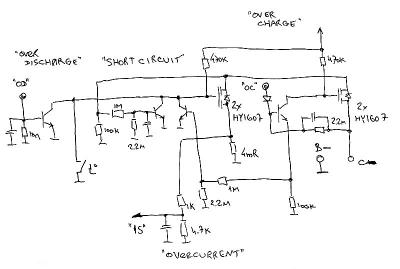 "OVER
CHARGE"
"OVER
DISCHARGE"
"SHORT CIRCUIT"
470K
470K
"OD"
"OC"
1M
2x
HY1607
2x
HY1607
10M
100K
2.2M
2.2M
B-
C-
t°
4mR
1M
1K
2.2M
100K
"IS"
4.7K
"OVERCURRENT"